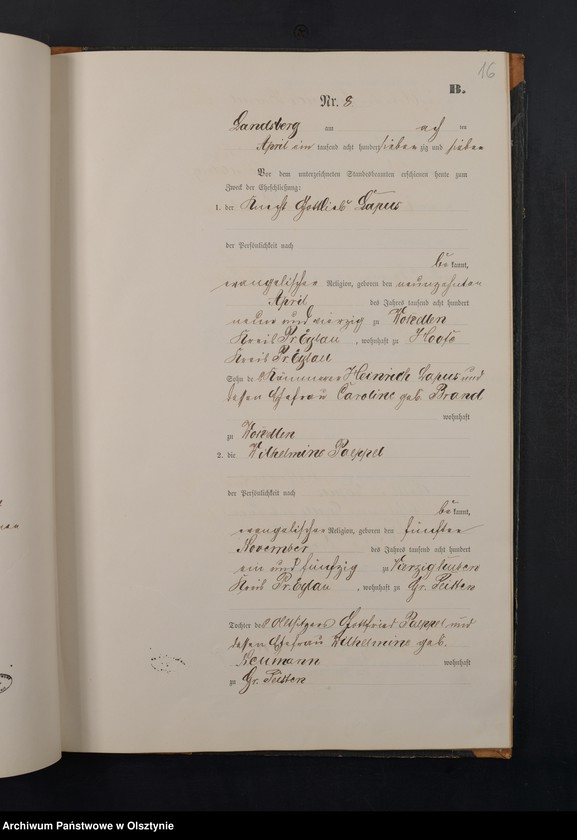 16
B.
Nr. 8
Landsberg am acht en
April ein tausend acht hundert sieben zig und sieben
Vor dem unterzeichneten Standesbeamten erschienen heute zum
Zweck der Eheschließung:
1. der Knecht Gottlieb Lapus
der Persönlichkeit nach
be kannt,
evangelischer Religion, geboren den neunzehnten
April des Jahres tausend acht hundert
neun und vierzig zu Worödlen
Kreis Pr. Eylau, wohnhaft zu Hoofe
Kreis Pr. Eylau
Sohn des Kämmerer Heinrich Lapus und
dessen Ehefrau Caroline geb. Brand
wohnhaft
zu
2. die Wilhelmine Paeppel
der Persönlichkeit nach
be kannt,
evangelischer Religion, geboren den fünften
November des Jahres tausend acht hundert
ein und fünfzig zu
Kreis Pr. Eylau, wohnhaft zu Gr. Peisten
Tochter des Altsitzers Gottfried Paeppel und
dessen Ehefrau Wilhelmine geb.
Neumann wohnhaft
zu Gr. Peisten
Archiwum Państwowe w Olsztynie